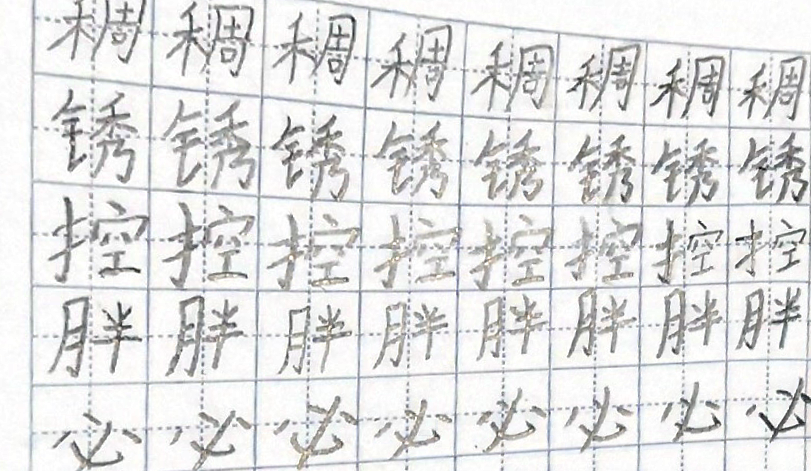 稠稠稠稠稠稠稠稠
锈锈锈锈锈锈锈锈
控控控控控控控控
胖胖胖胖胖胖胖胖
必必必必必必必必